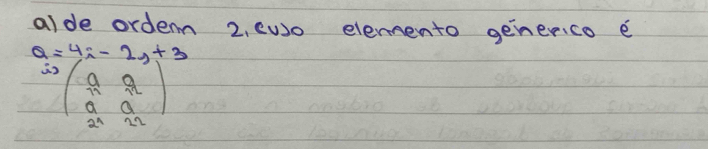 a) de ordem 2, cujo elemento genérico é
a = 4i - 2j + 3
ij
a a
11 12
a a
21 22